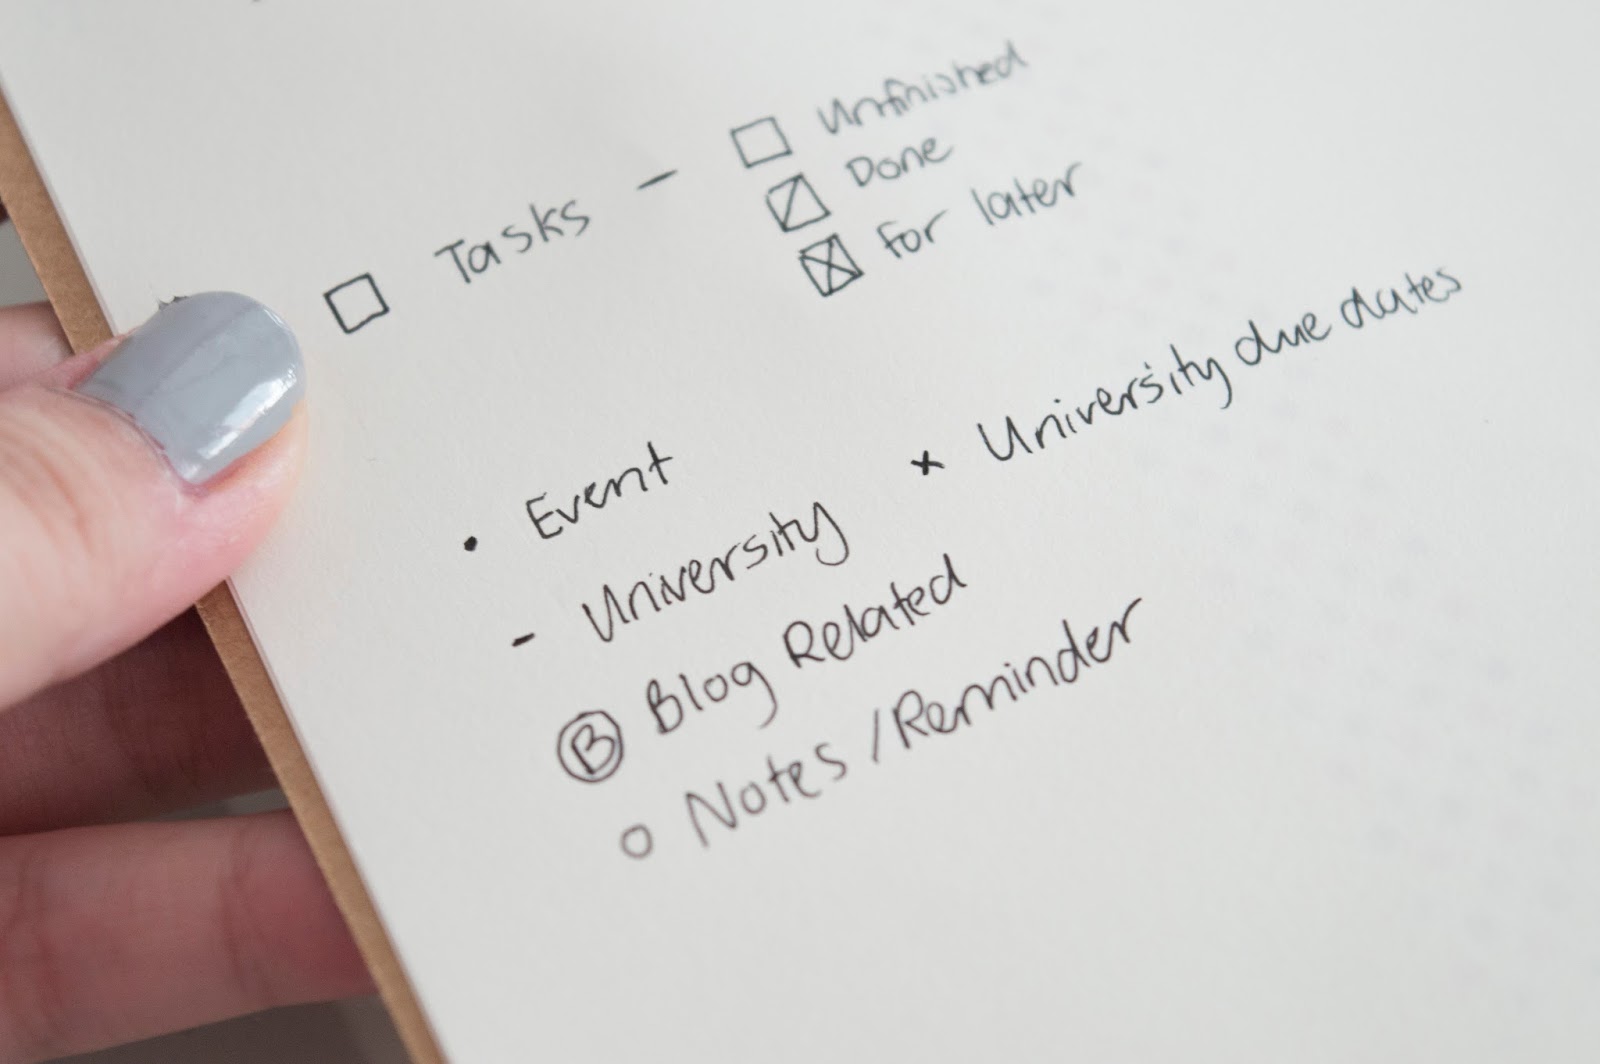 ☐ Tasks - ☐ Unfinished
☐ Done
☒ For later
• Event
- University × University due dates
Ⓑ Blog Related
○ Notes / Reminder